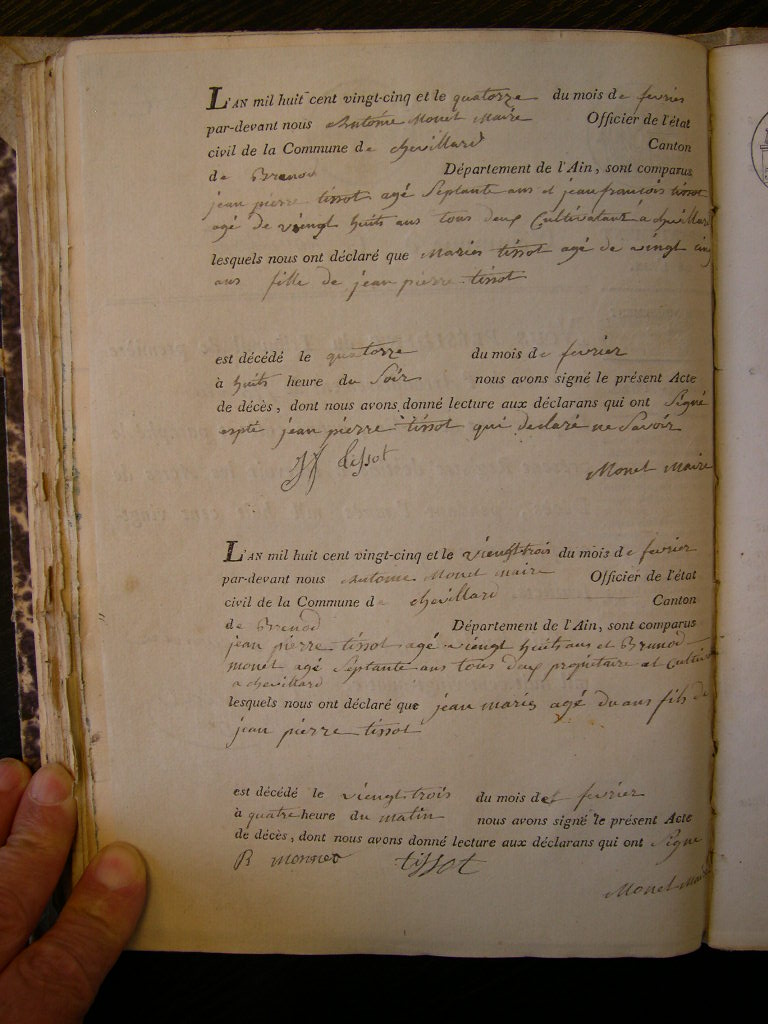 L'AN mil huit cent vingt-cinq et le quatorze du mois de fevrier
par-devant nous Antoine Monet Maire Officier de l'état
civil de la Commune de chevillard Canton
de Brenod Département de l'Ain, sont comparus
jean pierre tissot agé Septante ans et jean francois tissot
agé de vieingt huits ans tous deux Cultivataur à chevillard
lesquels nous ont déclaré que Maries tissot agé de vingt cinq
ans fille de jean pierre tissot
est décédé le quatorze du mois de fevrier
à huits heure du Soir nous avons signé le présent Acte
de décès, dont nous avons donné lecture aux déclarans qui ont Signé
espté jean pierre tissot qui declaré ne Savoir
JF tissot
Monet Maire
L'AN mil huit cent vingt-cinq et le vieingt trois du mois de fevrier
par-devant nous Antoine Monet maire Officier de l'état
civil de la Commune de chevillard Canton
de Brenod Département de l'Ain, sont comparus
jean pierre tissot agé vieingt huits ans et Brunod
monet agé Septante ans tous deux propietaire et Cultiv
a chevillard
lesquels nous ont déclaré que jean maries agé du ans fils de
jean pierre tissot
est décédé le vieingt trois du mois de fevrier
à quatre heure du matin nous avons signé le présent Acte
de décès, dont nous avons donné lecture aux déclarans qui ont Signe
B monnet tissot
Monet Maire